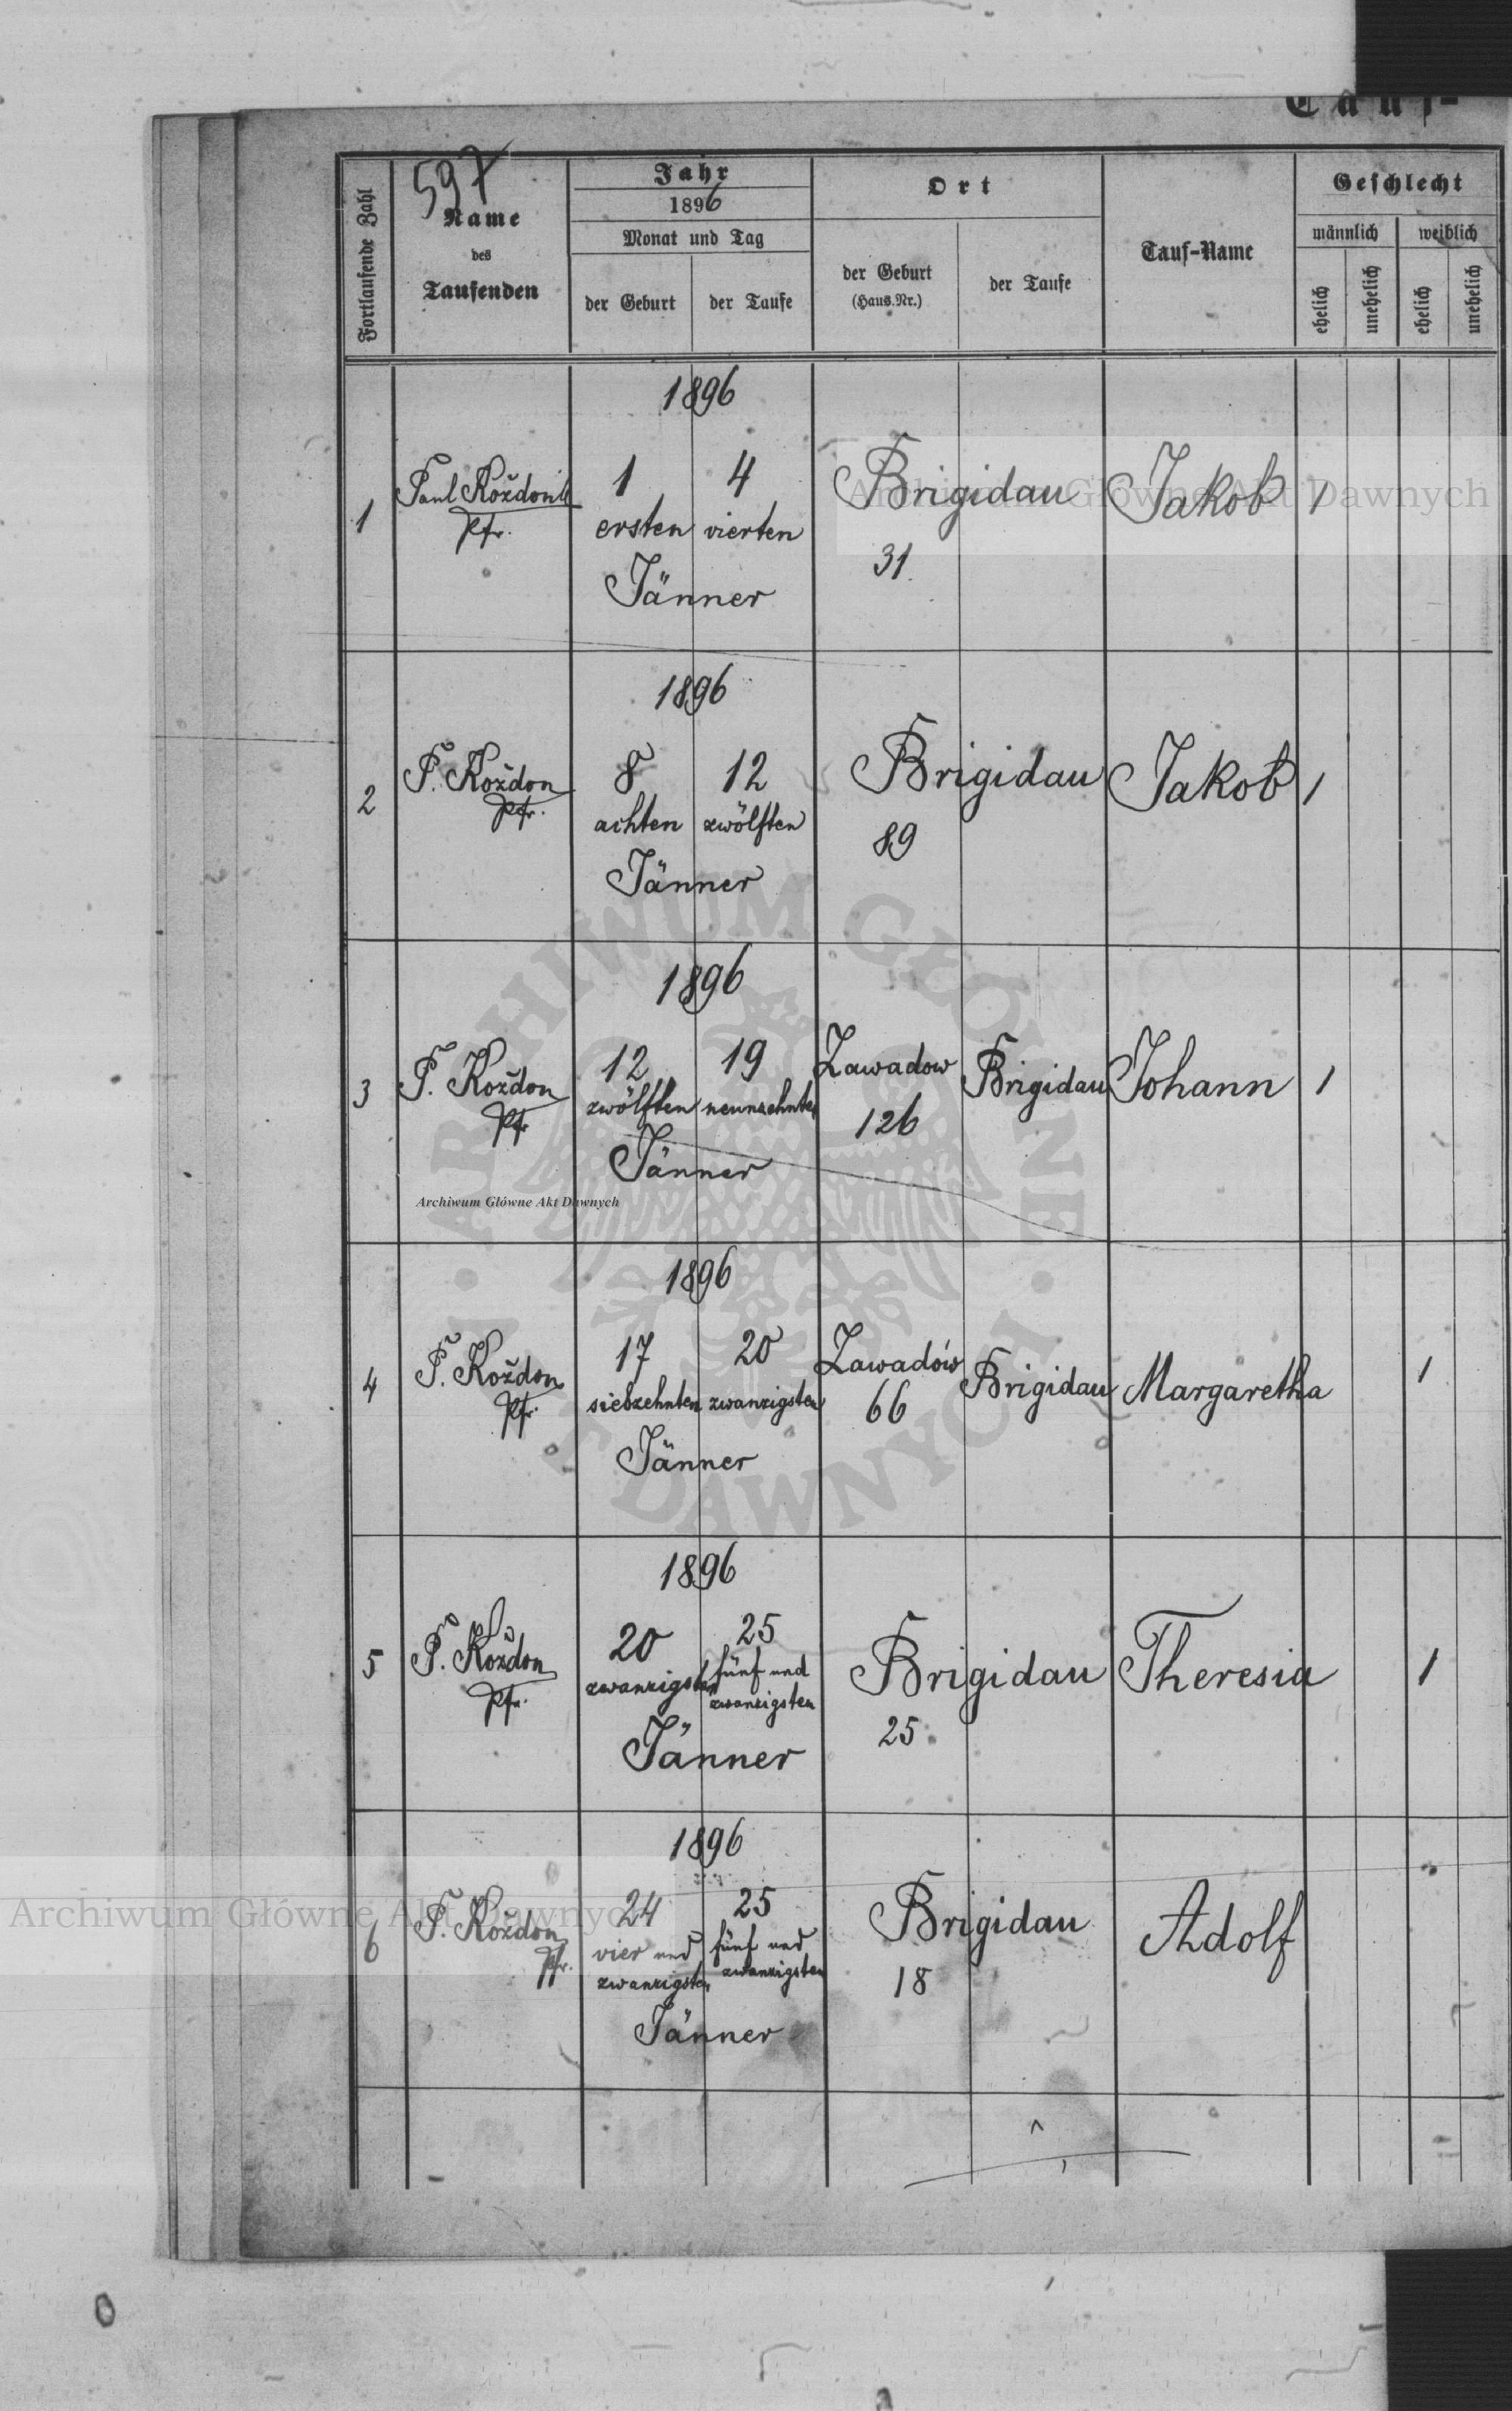 Tauf-
597
Fortlaufende Zahl
Name
des
Taufenden
Jahr
1896
Monat und Tag
der Geburt
der Taufe
Ort
der Geburt
(Haus.Nr.)
der Taufe
Tauf-Name
Geschlecht
männlich
weiblich
ehelich
unehelich
ehelich
unehelich
1896
1
Paul
Pfr.
1
4
ersten
vierten
Jänner
Brigidau
31
Jakob
1
1896
2
P. Koždon
Pfr.
8
12
achten
zwölften
Jänner
Brigidau
89
Jakob
1
1896
3
P. Koždon
Pfr
12
19
zwölften
neunzehnten
Jänner
Zawadow
126
Brigidau
Johann
1
1896
4
P. Koždon
Pfr.
17
20
siebzehnten
zwanzigsten
Jänner
Zawadów
66
Brigidau
Margaretha
1
1896
5
P. Koždon
Pfr.
20
25
zwanzigsten
fünf und
zwanzigsten
Jänner
Brigidau
25
Theresia
1
1896
6
P. Koždon
Pfr.
24
25
vier und
zwanzigsten
fünf und
zwanzigsten
Jänner
Brigidau
18
Adolf
Archiwum Główne Akt Dawnych
Archiwum Główne Akt Dawnych
Archiwum Główne Akt Dawnych
ARCHIWUM GŁÓWNE AKT DAWNYCH